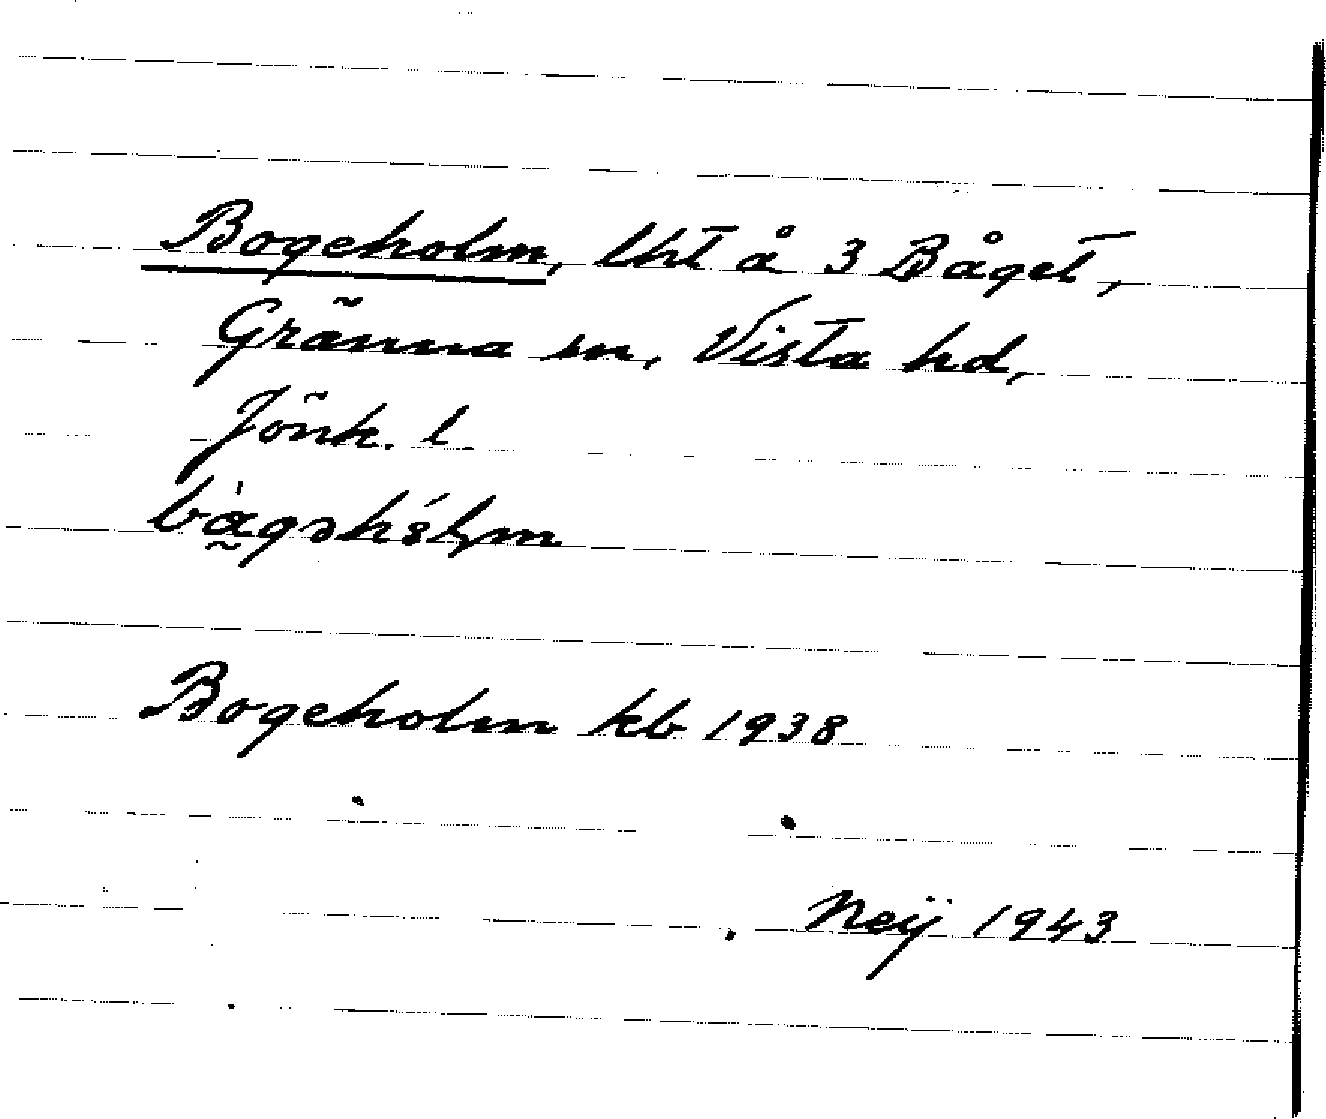 Bogeholm, lht å 3 Båget,
Gränna sn, Vista hd,
Jönk. l
Bogeholm kb 1938
Neij 1943